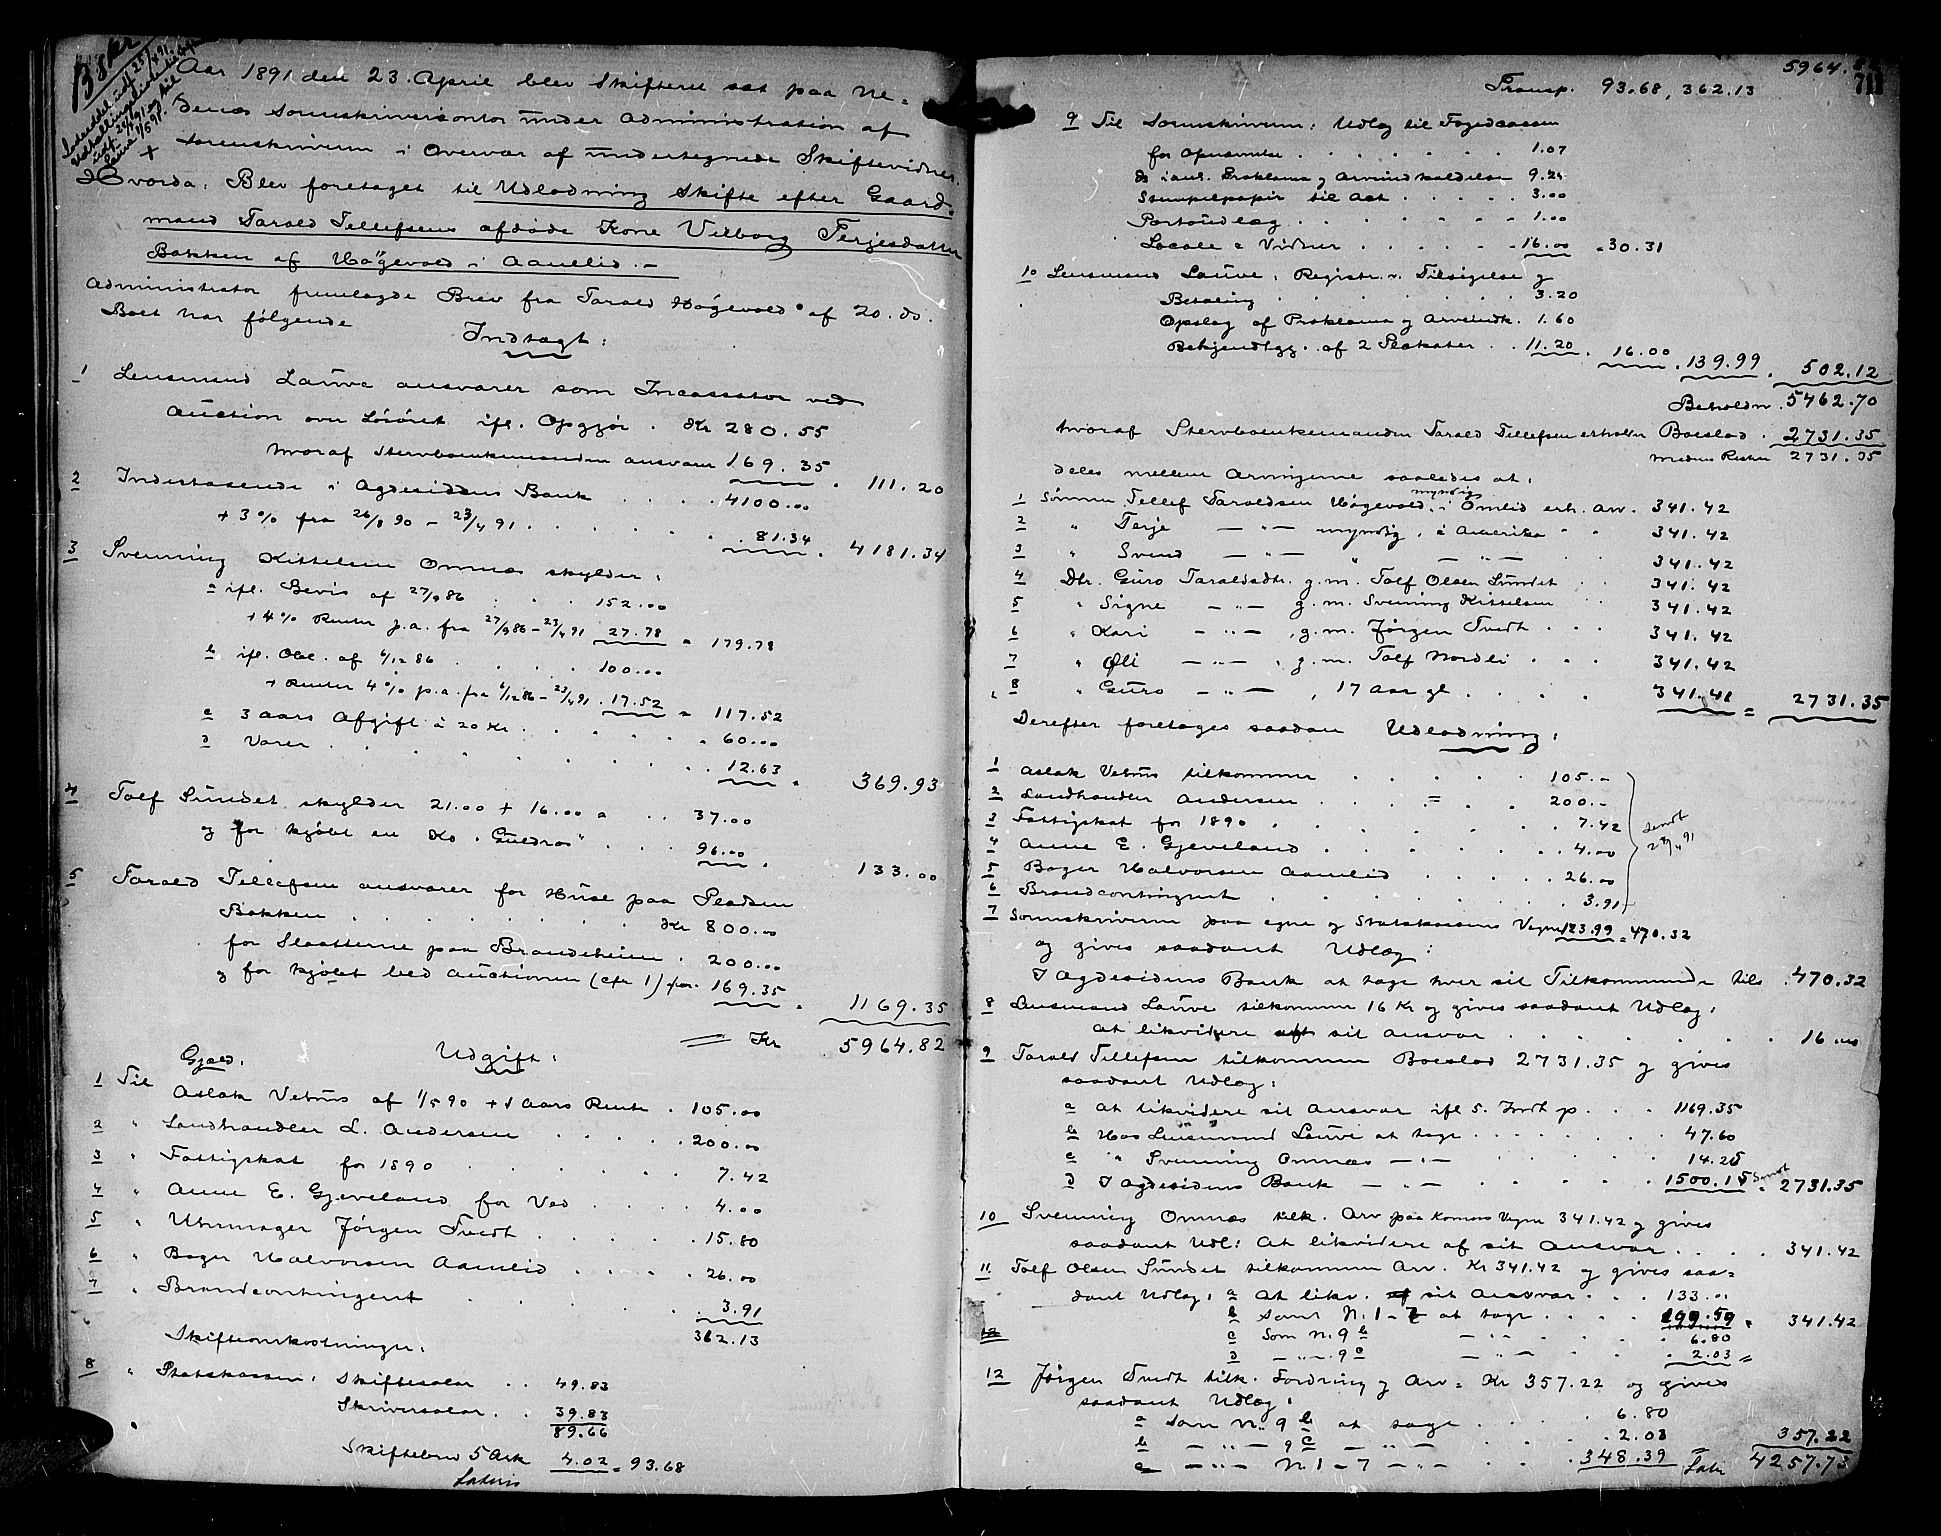 B 8 kr
Aar 1891 den 23. April blev Skifteret sat paa Ne=
denæs Sorenskrivercontor under Administration af
Sorenskriveren i Overvær af undertegnede Skiftevidner.
Hvorda: Blev foretaget til Udlodning Skifte efter Gaard=
mand Tarald Tellefsens afdøde Kone Vilborg Terjesdatter
Bakken af Høgevold i Aamlid.-
Administrator fremlagde Brev fra Tarald Høgevold af 20. ds.
Boet har følgende
Indtægt:
1 Lensmand Lauve ansvarer som Incassator ved
Auction over Løsøret ifl. Opgjør . Kr 280.55
hvoraf Stervboenkemanden ansvarer 169.35 . 111.20
2 Indestaaende i Agdesidens Bank . . . 4100.00
+ 3% fra 26/8 90 - 23/4 91 . . . . 81.34 . 4181.34
3 Svenning Kittelsen Omnæs skylder:
a ifl. Bevis af 27/9 86 . . . 152.00
+ 4% Renter p.a. fra 27/9 86 - 23/4 91 27.78 = 179.78
b ifl. Obl. af 6/12 86 . . . . 100.00
+ Renter 4% p.a. fra 6/12 86 - 23/4 91 . 17.52 = 117.52
c 3 Aars Afgift à 20 Kr . . . . . 60.00
d Varer . . . . . . . 12.63 . 369.93
4 Tolf Sundet skylder 21.00 + 16.00 = . . 37.00
og for kjøbt en Ko "Guldros" . . . 96.00 . 133.00
5 Tarald Tellefsen ansvarer for Huse paa Pladsen
Bakken . . . . . . . Kr 800.00
for Slaatterne paa Brandeheien . 200.00
og for kjøbt ved Auctionen (cfr 1) for . 169.35 . 1169.35
Kr 5964.82
Udgift:
Gjæld.
1 Til Aslak Vehus af 1/5 90 + 1 Aars Rente . 105.00
2 " Landhandler L. Andersen . . . . . 200.00
3 " Fattigskat for 1890 . . . . . 7.42
4 " Anne E. Gjeveland for Ved . . . . 4.00
5 " Uhrmager Jørgen Tvedt . . . . . 15.80
6 " Bager Halvorsen Aamlid . . . . 26.00
7 " Brandcontingent . . . . . . 3.91
362.13
Skifteomkostninger:
8 " Statskassen: Skiftesalær . . 49.83
Skriversalær . . 39.83
89.66
Skiftebrev 5 Ark 4.02 = 93.68
Lateris
5964.82
711
Transp. 93.68, 362.13
9 Til Sorenskriveren: Udlæg til Fogedcassen
for Opnævnelse . . . . . . . 1.07
do i anl. Proklama og Arveindkaldelse 9.24
Stempelpapir til Act . . . . . 3.00
Portoudlæg . . . . . . . 1.00
Locale & Vidner . . . . . . 16.00 = 30.31
10 Lensmand Lauve: Registr. v. Tilsigelse og
Betaling . . . . . . . . 3.20
Opslag af Proklama og Arveindk. . 1.60
Bekjendtgj. af 2 Plakater . . 11.20 . 16.00 . 139.99 . 502.12
Beholdn. 5462.70
hvoraf Stervboenkemanden Tarald Tellefsen erholder Boeslod . 2731.35
medens Resten 2731.35
deles mellem Arvingerne saaledes at:
1 Sønnen Tellef Taraldsen Høgevold, myndig i Omlid erh. Arv. 341.42
2 " Terje —"— myndig, i Amerika " . 341.42
3 " Svend —"— " —"— 341.42
4 Dtr. Guro Taraldsdtr. g.m. Tolf Olsen Sundet . . 341.42
5 " Signe —"— g.m. Svening Kittelsen . . 341.42
6 " Kari —"— , g.m. Jørgen Tvedt . . . 341.42
7 " Øli —"— , g.m. Tolf Nordli . . . 341.42
8 " Guro —"— , 17 Aar gl . . . . 341.41 = 2731.35
Derefter foretages saadan Udlodning:
1 Aslak Vehus tilkommer . . . . . 105.-
2 Landhandler Andersen . . . = . . 200.-
3 Fattigskat for 1890 . . . . . . 7.42
4 Anne E. Gjeveland . . . . . . . 4.00
5 Bager Halvorsen Aamlid . . . . . 26.00
6 Brandcontingent . . . . . . . 3.91
sendt 24/4 91
7 Sorenskriveren paa egne og Statskassens Vegne 123.99 = 470.32
og gives saadant Udlæg:
I Agdesidens Bank at tage hver sit Tilkommende tils . 470.32
8 Lensmand Lauve tilkommer 16 Kr og gives saadant Udlæg:
at likvidere sit Ansvar . . . . . . . . 16.00
9 Tarald Tellefsen tilkommer Boeslod 2731.35 og gives
saadant Udlæg:
a At likvidere sit Ansvar ifl 5. Indt p. . . . 1169.35
b Hos Lensmand Lauve at tage . . . . . . 47.60
c " Svenning Omnæs —"— . . . . . 14.25
d I Agdesidens Bank —"— . . . . . 1500.15 sendt . 2731.35
10 Svenning Omnæs tilk. Arv paa Konens Vegne 341.42 og gives
saadant Udl: At likvidere af sit Ansvar . . . . 341.42
11 Tolf Olsen Sundet tilkommer Arv. Kr 341.42 og gives saa=
dant Udlæg: a At likv. sit Ansvar . . . 133.00
b Samt N. 1-7 at tage . . . . 199.59 = 341.42
c Som N. 9 b —"— . . . . 6.80
d —"— 9 c —"— . . . . 2.03 =
12 Jørgen Tvedt tilk. Fordring og Arv = Kr 357.22 og gives
saadant Udlæg:
a Som N. 9 b at tage . . . . 6.80
b —"— 9 c —"— . . . . 2.03 357.22
c —"— N. 1-7 —"— . . . 348.39 Later 4257.73